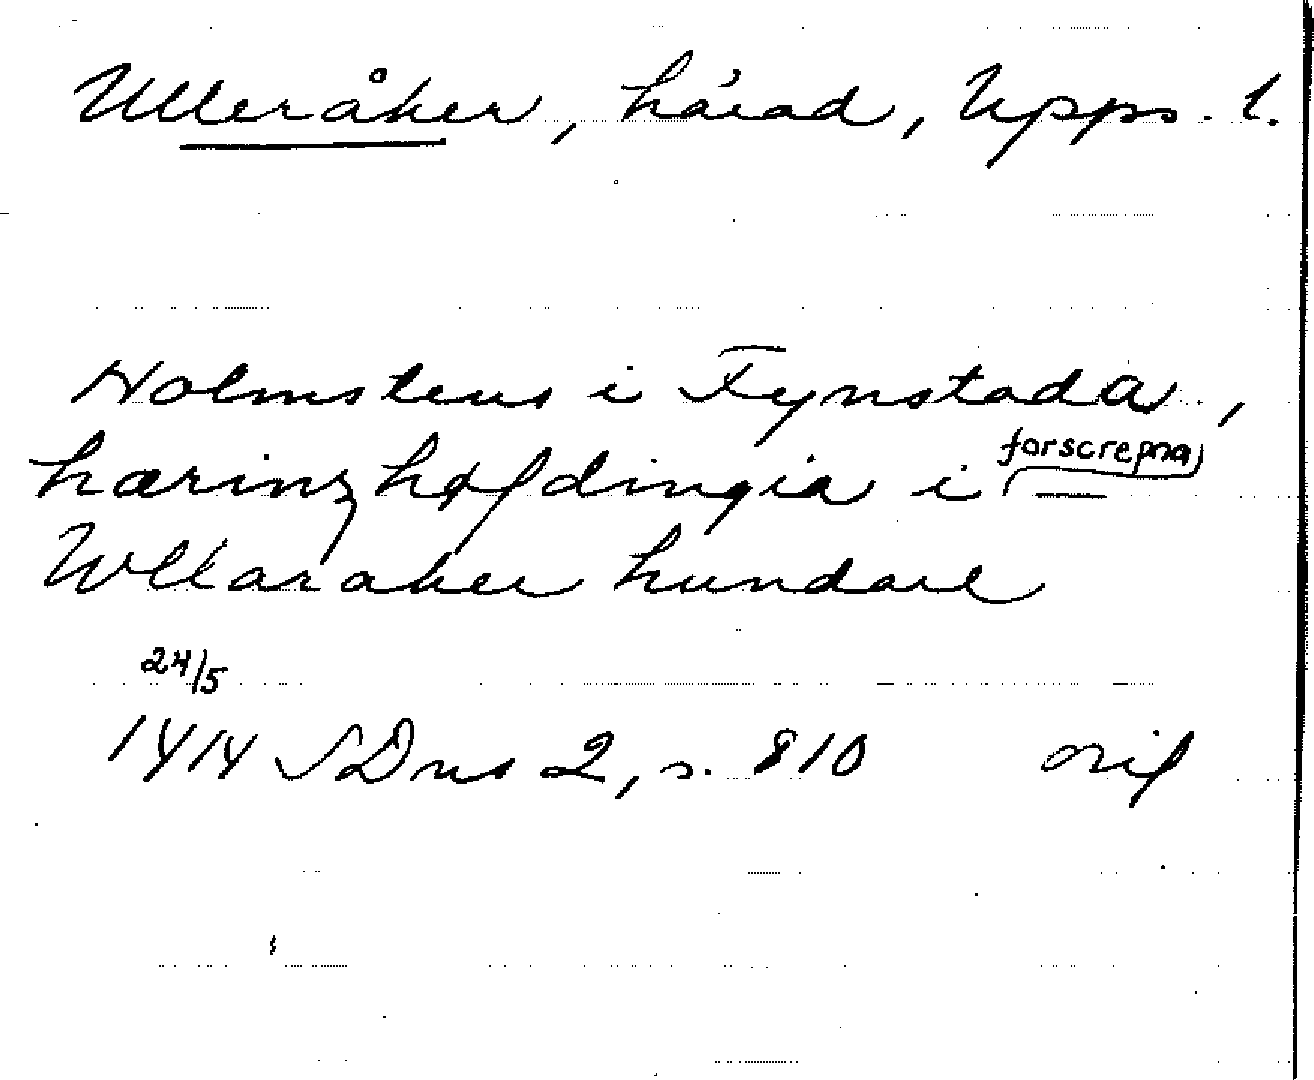 Ulleråker, härad, Upps. l.
Holmstens i Fynstada,
hærinzhøfdingia i forscrepna
Wllaraker hundare
24/5
1414 SDns 2, s. 810 orig